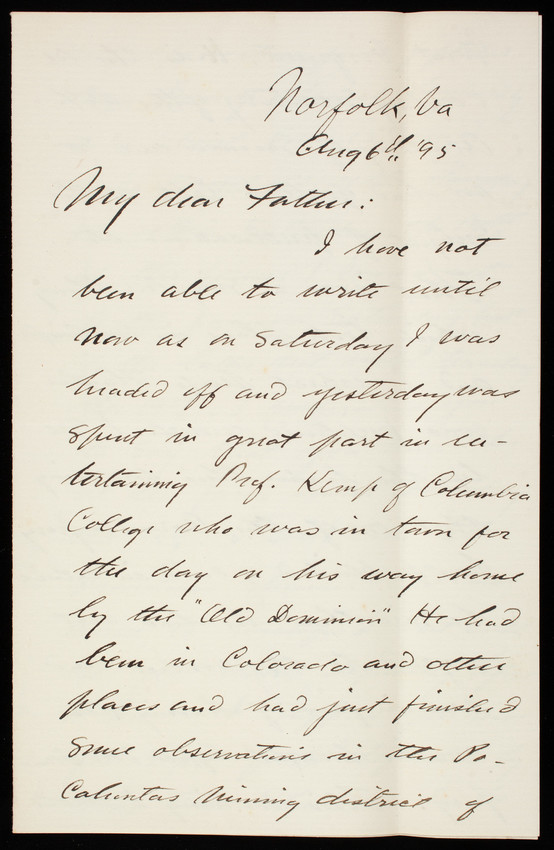 Norfolk, Va
Aug 6th '95
My dear Father:
I have not
been able to write until
now as on Saturday I was
headed off and yesterday was
spent in great part in en-
tertaining Prof. Kemp of Columbia
College who was in town for
the day on his way home
by the "Old Dominion" He had
been in Colorado and other
places and had just finished
some observations in the Po-
cahontas mining district of